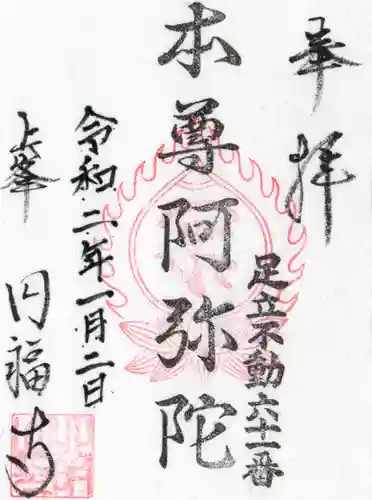 奉拝
足立不動六十一番
本尊阿弥陀
令和二年一月二日
上峯
円福寺